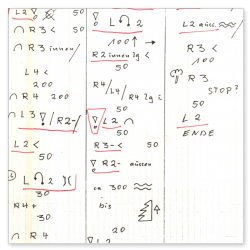 L2
50
∩ R3 <
50
∩ R3 innen/
L4 <
200
∩ R4 200
∩ L3 /R2-/
50
L2 <
50
L 2 )(
30
R4+
30
∩ R4
L 2
100 ↑ →
R2 innen lg <
50
R4/
L4/ R4 lg i
50
L2 ∩
50
R3-<
50
R2- aussen
ca 300
bis
20
L2
L2 auss.
R3 <
100
R3
STOP?
50
L2
ENDE